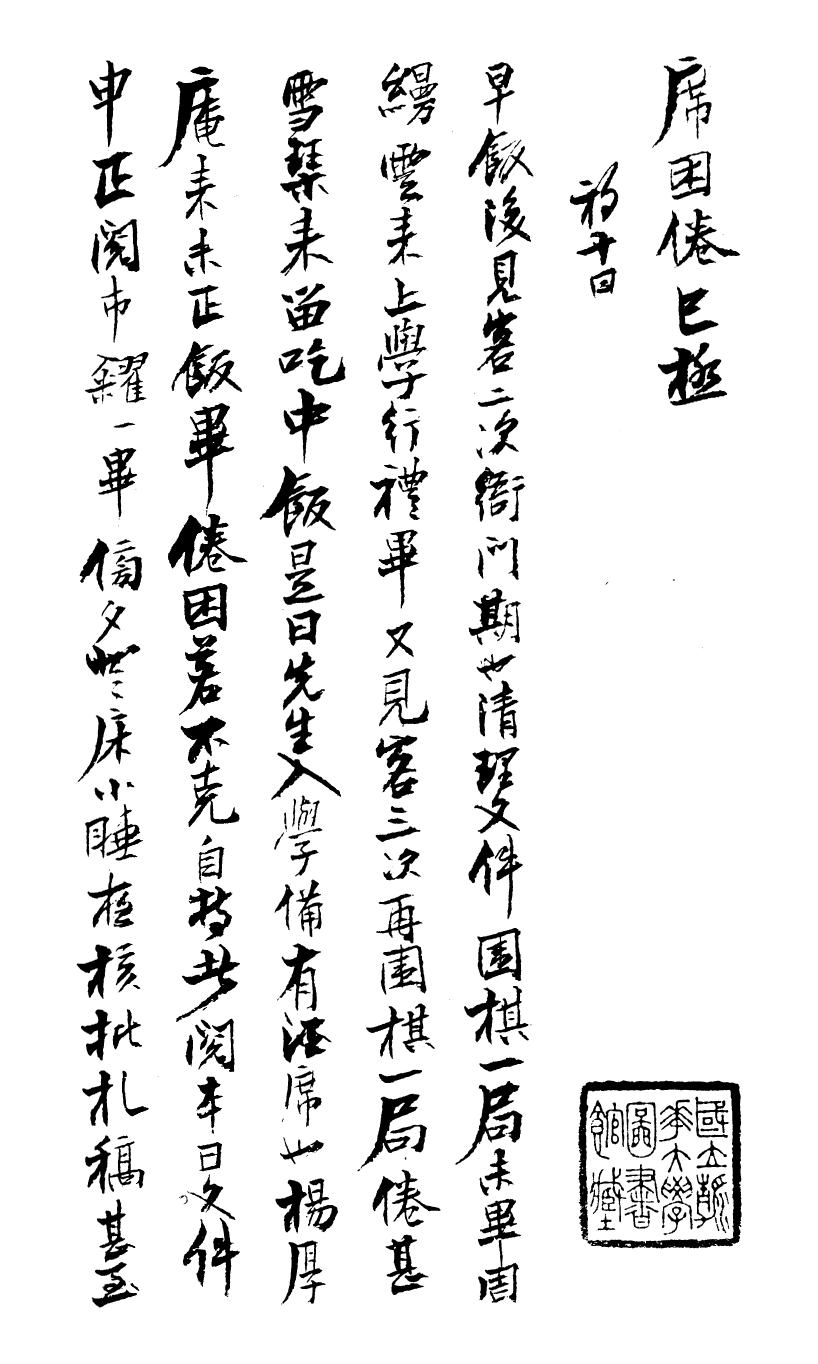 席困倦已極
初十日
早飯後見客二次衙門期也清理文件圍棋一局未畢周
縵雲來上學行禮畢又見客三次再圍棋一局倦甚
雪琴來留吃中飯是日先生入學備有酒席也楊厚
庵來未正飯畢倦困若不克自持閱本日文件
申正閱糴一畢傍夕床小睡核批札稿甚至
國立清
華大學
圖書
館藏